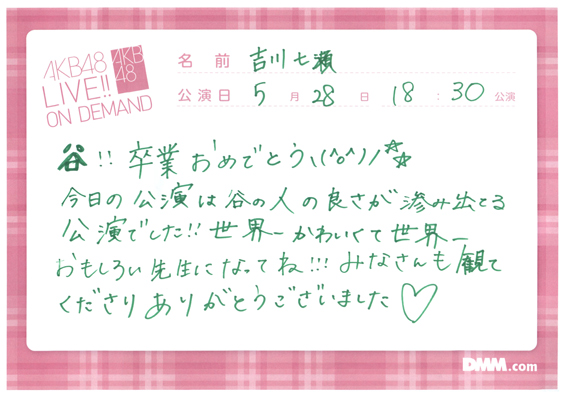 AKB48
LIVE!!
ON DEMAND
AKB
48
名前 吉川七瀬
公演日 5月28日 18:30公演
谷!! 卒業おめでとう\(^o^)/☆☆
今日の公演は谷の人の良さが滲み出てる
公演でした!! 世界一かわいくて世界一
おもしろい先生になってね!!! みなさんも観て
くださりありがとうございました♡
DMM.com